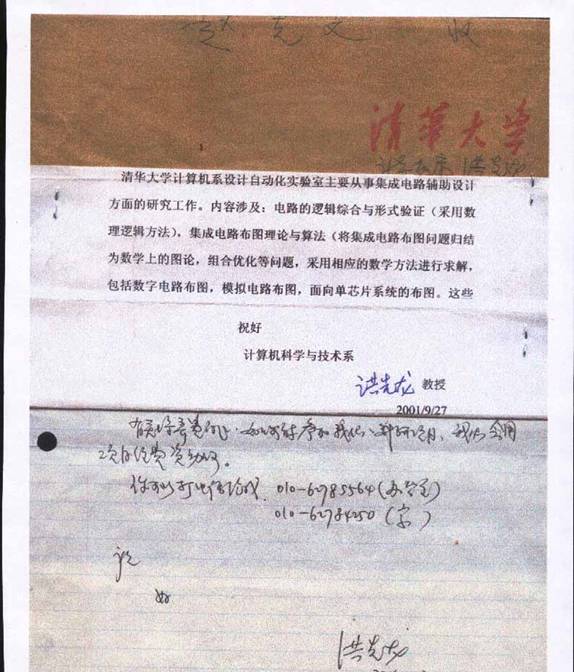 赵克文 收
清华大学
计算机系 洪先龙
清华大学计算机系设计自动化实验室主要从事集成电路辅助设计
方面的研究工作。内容涉及：电路的逻辑综合与形式验证（采用数
理逻辑方法），集成电路布图理论与算法（将集成电路布图问题归结
为数学上的图论，组合优化等问题，采用相应的数学方法进行求解，
包括数字电路布图，模拟电路布图，面向单芯片系统的布图。这些
祝好
计算机科学与技术系
洪先龙 教授
2001/9/27
我们会用
项目经费资助你。
你可以打电话给我 010-62785564(办公室)
010-62784250 (家)
祝
好
洪先龙